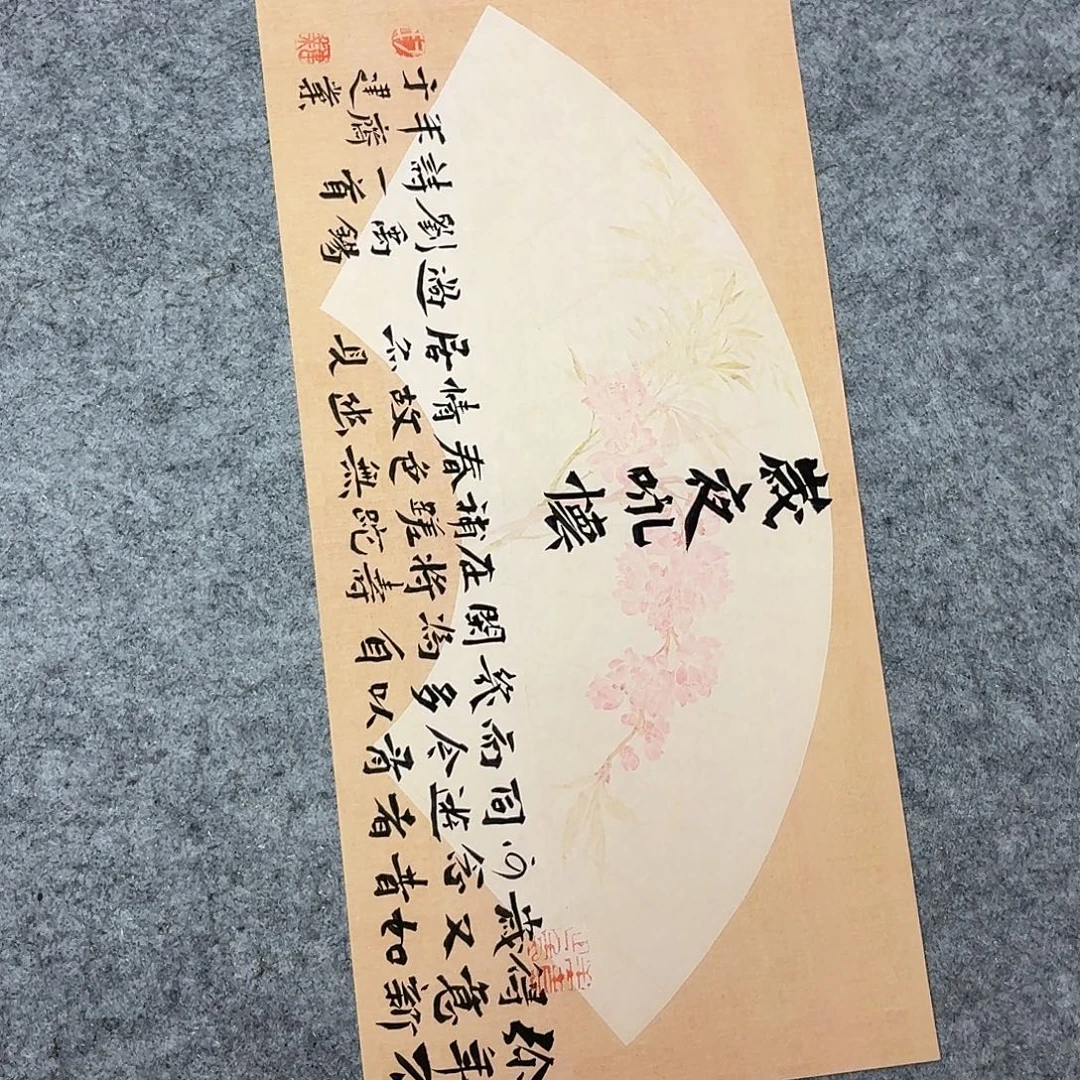 歲夜咏懷
珎年不
得意新
歲又如
何念昔
同遊者
而今有
幾多以
閑為自
在將壽
補蹉跎
春色無
情故幽
居亦見
過
劉禹錫
詩一首
齋
于建業